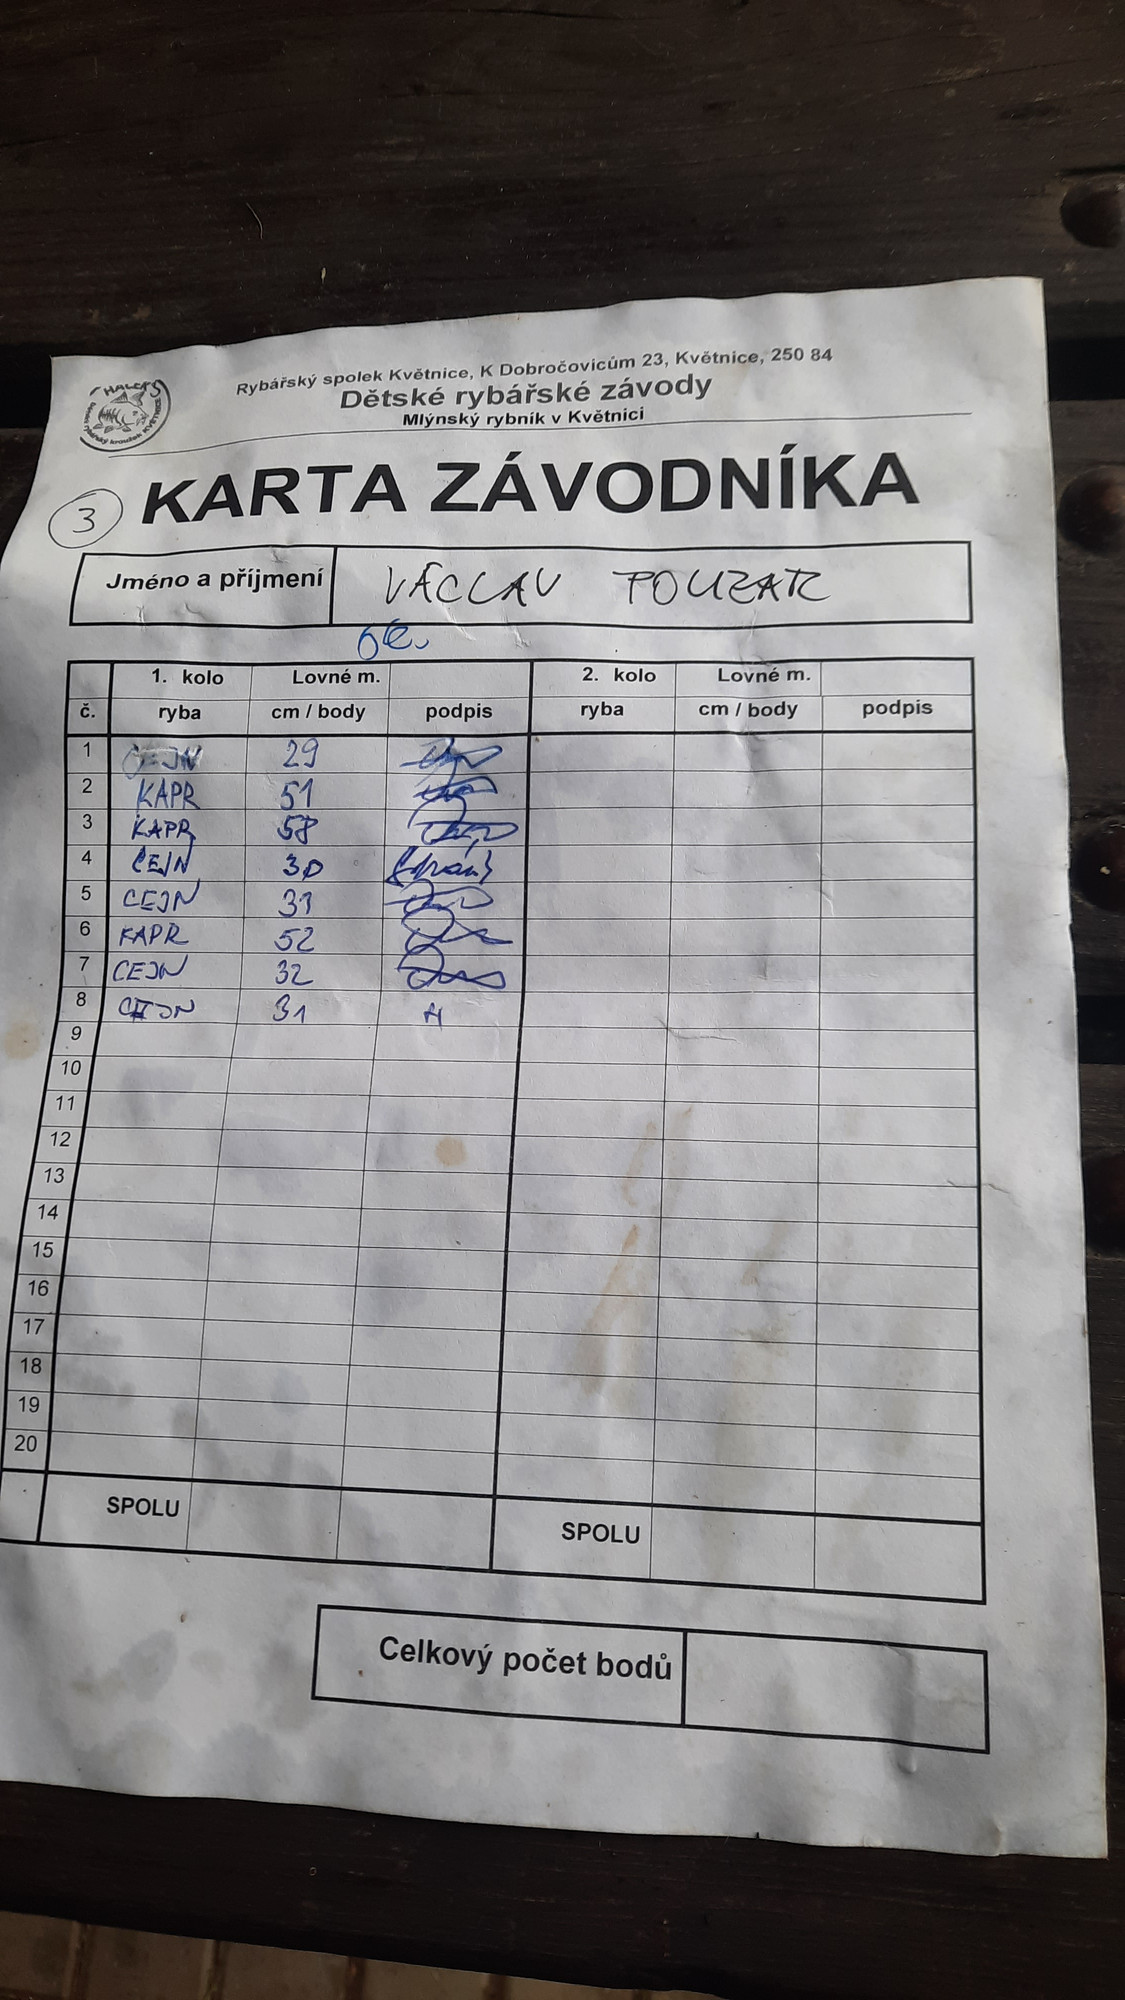 HALEČKS
Rybářský spolek Květnice, K Dobročovicúm 23, Květnice, 250 84
Dětské rybářské závody
Mlýnský rybník v Květnici
KARTA ZÁVODNÍKA
3
Jméno a příjmení VÁCLAV POUZAR
1. kolo Lovné m. 2. kolo Lovné m.
č. ryba cm / body podpis ryba cm / body podpis
1 CEJN 29
2 KAPR 51
3 KAPR 58
4 CEJN 30
5 CEJN 31
6 KAPR 52
7 CEJN 32
8 CEJN 31
9
10
11
12
13
14
15
16
17
18
19
20
SPOLU SPOLU
Celkový počet bodů